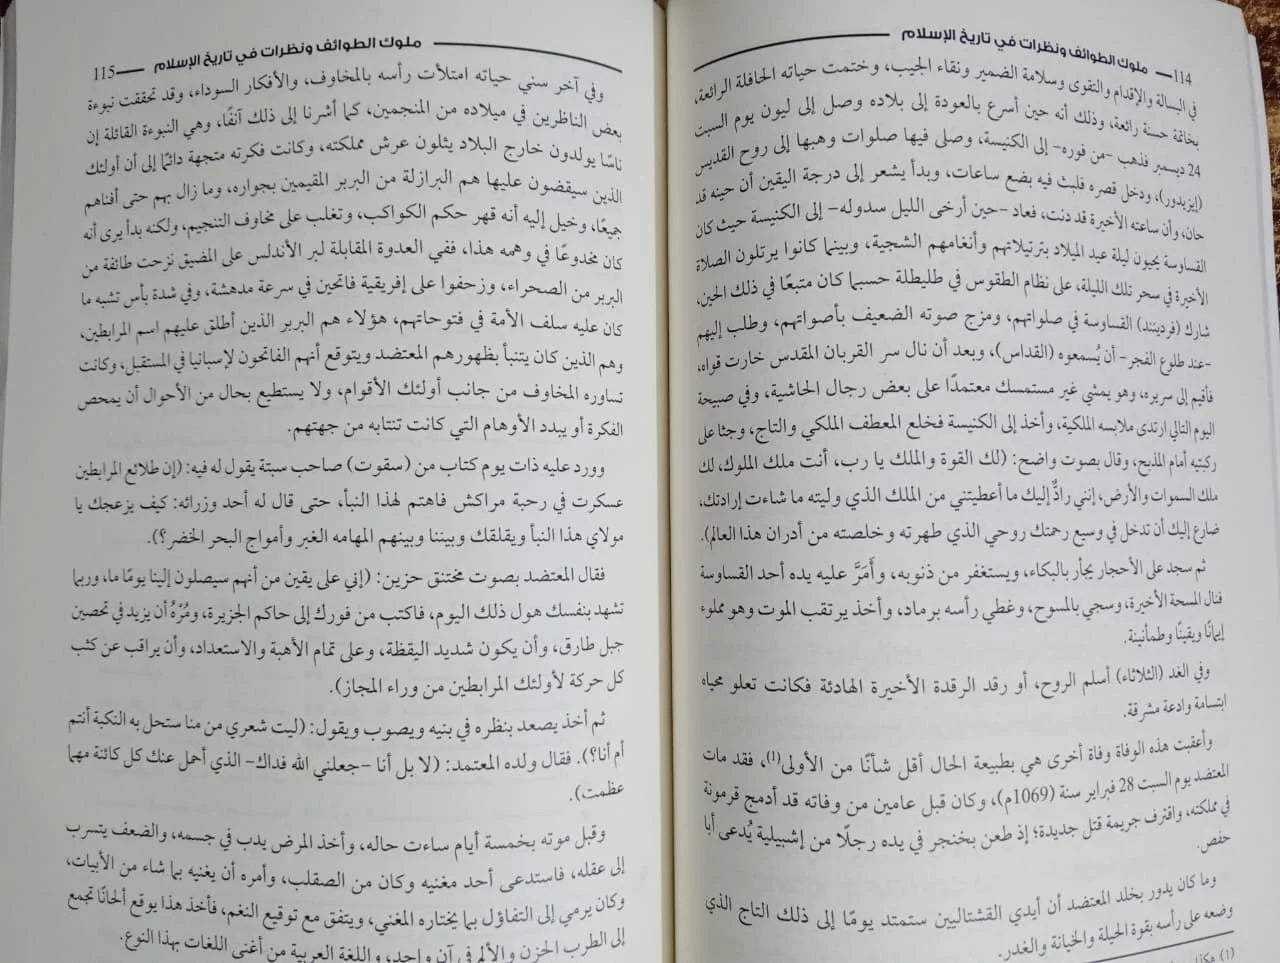 114 ملوك الطوائف ونظرات في تاريخ الإسلام
في البسالة والإقدام والتقوى وسلامة الضمير ونقاء الجيب، وختمت حياته الحافلة الرائعة،
بخاتمة حسنة رائعة، وذلك أنه حين أسرع بالعودة إلى بلاده وصل إلى ليون يوم السبت
24 ديسمبر فذهب -من فوره- إلى الكنيسة، وصلى فيها صلوات وهبها إلى روح القديس
(إيزيدور)، ودخل قصره فلبث فيه بضع ساعات، وبدأ يشعر إلى درجة اليقين أن حينه قد
حان، وأن ساعته الأخيرة قد دنت، فعاد -حين أرخى الليل سدوله- إلى الكنيسة حيث كان
القساوسة يحيون ليلة عيد الميلاد بترتيلاتهم وأنغامهم الشجية، وبينما كانوا يرتلون الصلاة
الأخيرة في سحر تلك الليلة، على نظام الطقوس في طليطلة حسبما كان متبعًا في ذلك الحين،
شارك (فردينند) القساوسة في صلواتهم، ومزج صوته الضعيف بأصواتهم، وطلب إليهم
-عند طلوع الفجر- أن يُسمعوه (القداس)، وبعد أن نال سر القربان المقدس خارت قواه،
فأقيم إلى سريره، وهو يمشي غير مستمسك معتمدًا على بعض رجال الحاشية، وفي صبيحة
اليوم التالي ارتدى ملابسه الملكية، وأخذ إلى الكنيسة فخلع المعطف الملكي والتاج، وجثا على
ركبتيه أمام المذبح، وقال بصوت واضح: (لك القوة والملك يا رب، أنت ملك الملوك، لك
ملك السموات والأرض، إنني رادٌّ إليك ما أعطيتني من الملك الذي وليته ما شاءت إرادتك،
ضارع إليك أن تدخل في وسيع رحمتك روحي الذي طهرته وخلصته من أدران هذا العالم).
ثم سجد على الأحجار يجأر بالبكاء، ويستغفر من ذنوبه، وأَمَرَّ عليه يده أحد القساوسة
فنال المسحة الأخيرة، وسجي بالمسوح، وغطي رأسه برماد، وأخذ يرتقب الموت وهو مملوء
إيمانًا ويقينًا وطمأنينة.
وفي الغد (الثلاثاء) أسلم الروح، أو رقد الرقدة الأخيرة الهادئة فكانت تعلو محياه
ابتسامة وادعة مشرقة.
وأعقبت هذه الوفاة وفاة أخرى هي بطبيعة الحال أقل شأنًا من الأولى(1)، فقد مات
المعتضد يوم السبت 28 فبراير سنة (1069م)، وكان قبل عامين من وفاته قد أدمج قرمونة
في مملكته، واقترف جريمة قتل جديدة؛ إذ طعن بخنجر في يده رجلًا من إشبيلية يُدعى أبا
حفص.
وما كان يدور بخلد المعتضد أن أيدي القشتاليين ستمتد يومًا إلى ذلك التاج الذي
وضعه على رأسه بقوة الحيلة والخيانة والغدر.
(1) هكذا
ملوك الطوائف ونظرات في تاريخ الإسلام 115
وفي آخر سني حياته امتلأت رأسه بالمخاوف، والأفكار السوداء، وقد تحققت نبوءة
بعض الناظرين في ميلاده من المنجمين، كما أشرنا إلى ذلك آنفًا، وهي النبوءة القائلة إن
ناسًا يولدون خارج البلاد يثلون عرش مملكته، وكانت فكرته متجهة دائمًا إلى أن أولئك
الذين سيقضون عليها هم البرازلة من البربر المقيمين بجواره، وما زال بهم حتى أفناهم
جميعًا، وخيل إليه أنه قهر حكم الكواكب، وتغلب على مخاوف التنجيم، ولكنه بدأ يرى أنه
كان مخدوعًا في وهمه هذا، ففي العدوة المقابلة لبر الأندلس على المضيق نزحت طائفة من
البربر من الصحراء، وزحفوا على إفريقية فاتحين في سرعة مدهشة، وفي شدة بأس تشبه ما
كان عليه سلف الأمة في فتوحاتهم، هؤلاء هم البربر الذين أطلق عليهم اسم المرابطين،
وهم الذين كان يتنبأ بظهورهم المعتضد ويتوقع أنهم الفاتحون لإسبانيا في المستقبل، وكانت
تساوره المخاوف من جانب أولئك الأقوام، ولا يستطيع بحال من الأحوال أن يمحص
الفكرة أو يبدد الأوهام التي كانت تنتابه من جهتهم.
وورد عليه ذات يوم كتاب من (سقوت) صاحب سبتة يقول له فيه: (إن طلائع المرابطين
عسكرت في رحبة مراكش فاهتم لهذا النبأ، حتى قال له أحد وزرائه: كيف يزعجك يا
مولاي هذا النبأ ويقلقك وبيننا وبينهم المهامه الغبر وأمواج البحر الخضر؟).
فقال المعتضد بصوت مختنق حزين: (إني على يقين من أنهم سيصلون إلينا يومًا ما، وربما
تشهد بنفسك هول ذلك اليوم، فاكتب من فورك إلى حاكم الجزيرة، ومُرْهُ أن يزيد في تحصين
جبل طارق، وأن يكون شديد اليقظة، وعلى تمام الأهبة والاستعداد، وأن يراقب عن كثب
كل حركة لأولئك المرابطين من وراء المجاز).
ثم أخذ يصعد بنظره في بنيه ويصوب ويقول: (ليت شعري من منا ستحل به النكبة أنتم
أم أنا؟). فقال ولده المعتمد: (لا بل أنا -جعلني الله فداك- الذي أحمل عنك كل كائنة مهما
عظمت).
وقبل موته بخمسة أيام ساءت حاله، وأخذ المرض يدب في جسمه، والضعف يتسرب
إلى عقله، فاستدعى أحد مغنيه وكان من الصقلب، وأمره أن يغنيه بما شاء من الأبيات،
وكان يرمي إلى التفاؤل بما يختاره المغني، ويتفق مع توقيع النغم، فأخذ هذا يوقع ألحانًا تجمع
إلى الطرب الحزن والألم في آن واحد، واللغة العربية من أغنى اللغات بهذا النوع.